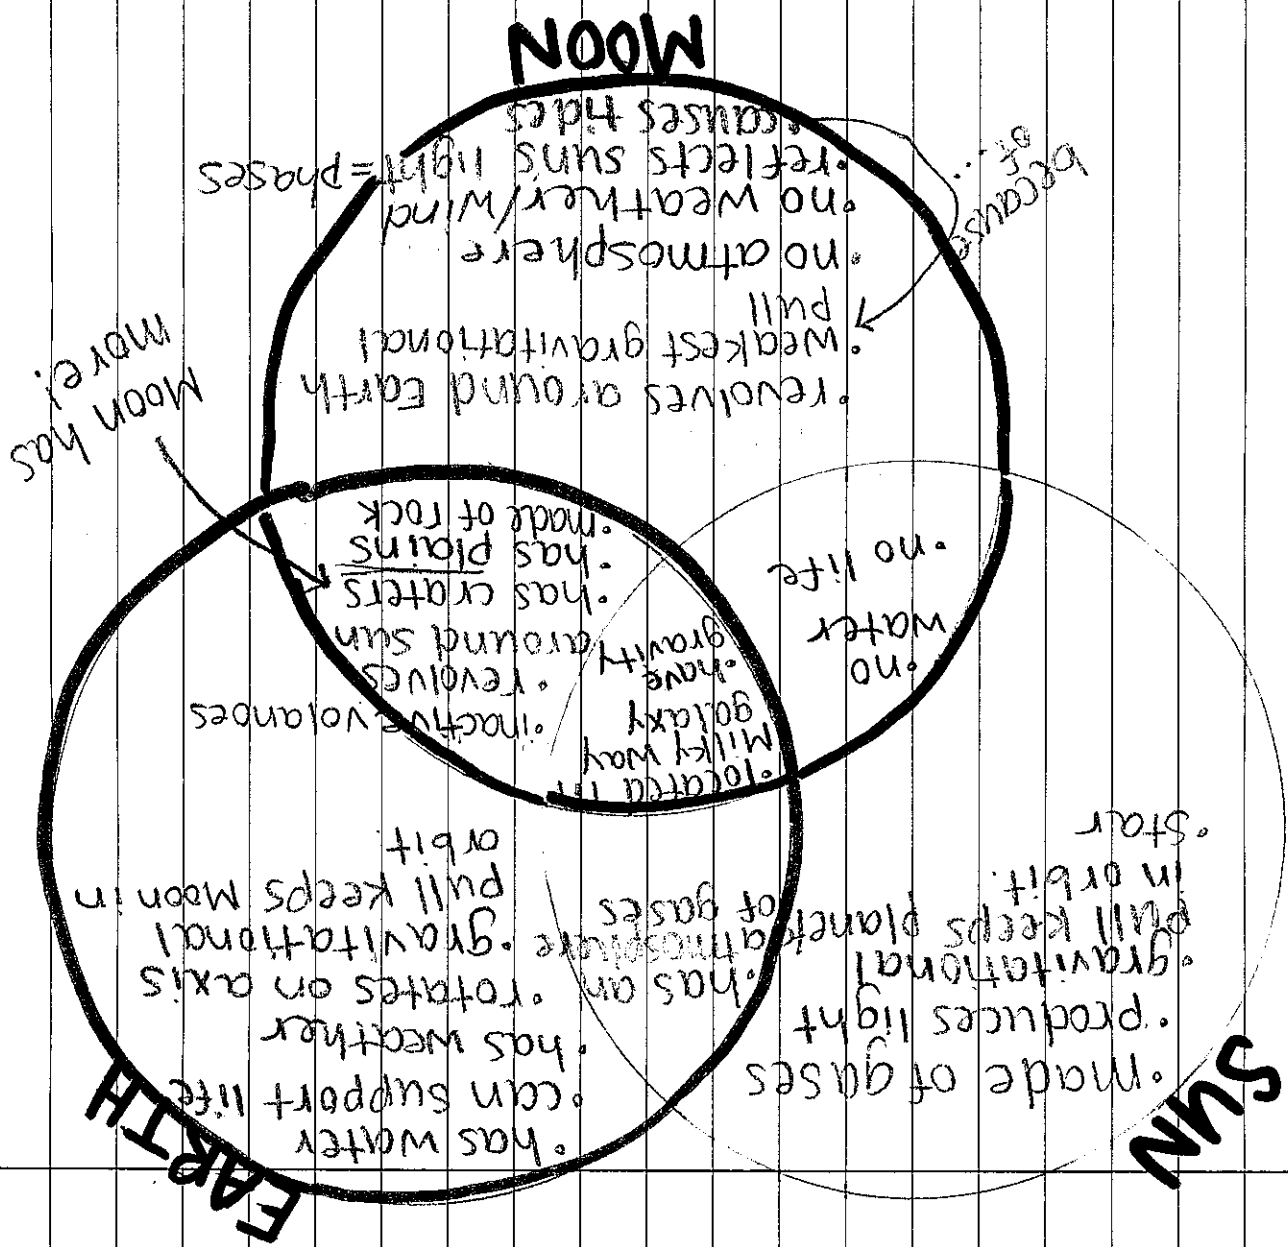 SUN
• made of gases
• produces light
• gravitational
pull keeps planets
in orbit.
• star
EARTH
• has water
• can support life
• has weather
• rotates on axis
• gravitational
pull keeps Moon in
orbit.
• has an
atmosphere
of gases
• located in
Milky Way
galaxy
• have
gravity
• inactive volanoes
• revolves
around sun
• has craters
• has plains
• made of rock
Moon has
more!
• no
water
• no life
• revolves around Earth
• weakest gravitational
pull
• no atmosphere
• no weather/wind
• reflects suns light = phases
• causes tides
because
of...
MOON